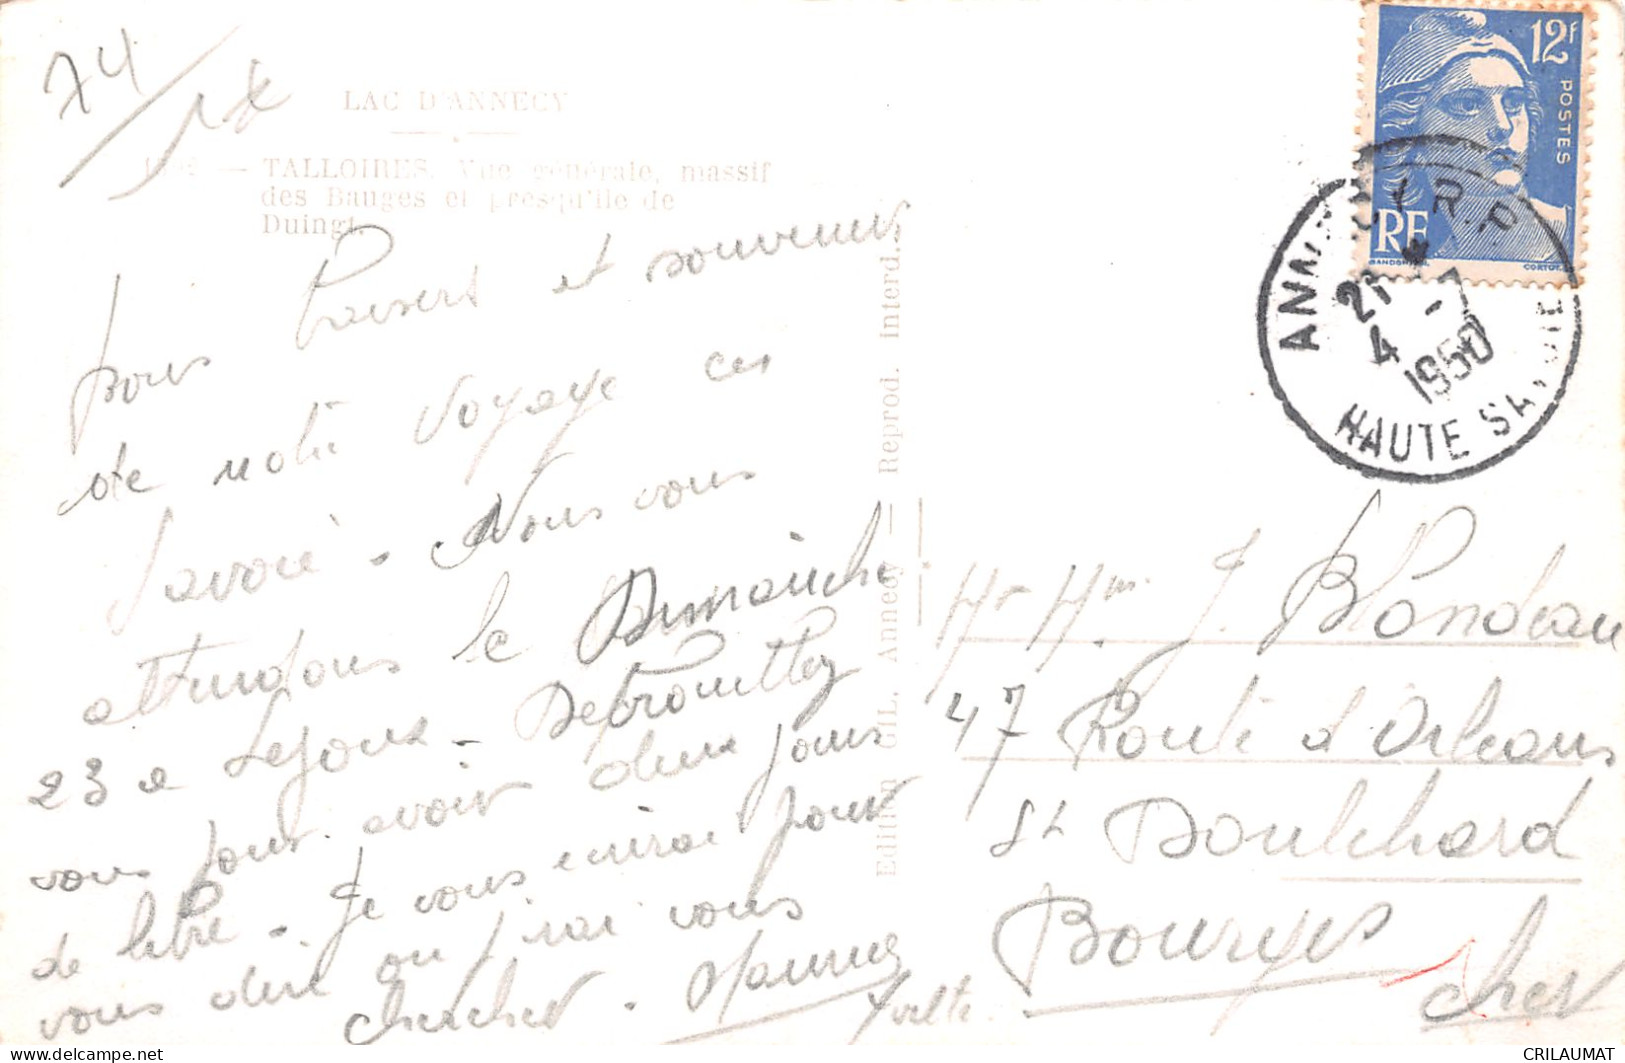 74
LAC D'ANNECY
— TALLOIRES. Vue générale, massif
des Bauges et presqu'île de
Duingt.
bons baisers et souvenirs
de notre voyage en
Savoie - Nous vous
attendons le Dimanche
23 a Lejoux - Debrouillez
vous pour avoir deux jours
de libre - Je vous ecrirai pour
vous dire ou j'irai vous
chercher -
Yvette
Edition GIL, Annecy — Reprod. interd.
12f
POSTES
RF
CORTOT
ANN R.P.
21 -
4
1950
HAUTE SAVOIE
Mr Mme J. Blondeau
47 Route d'Orleans
St Doulchard
Bourges
Cher
CRILAUMAT